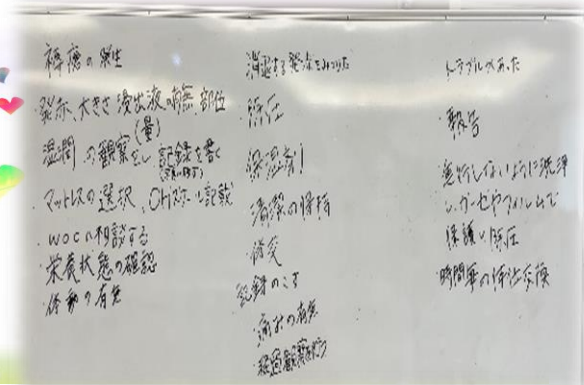 褥瘡の発生
発赤、大きさ、浸出液の有無、部位
(量)
湿潤 の観察をし 記録を書く
・マットレスの選択、OHスケールに記載
・WOCに相談する
・栄養状態の確認
・体動の有無
消退する発赤をみつけた
除圧
保湿剤
清潔の保持
記録のこす
・痛みの有無
トラブルがあった
・報告
悪化しないように洗浄
し、ガーゼやフィルムで
保護し除圧
・時間毎の体位交換